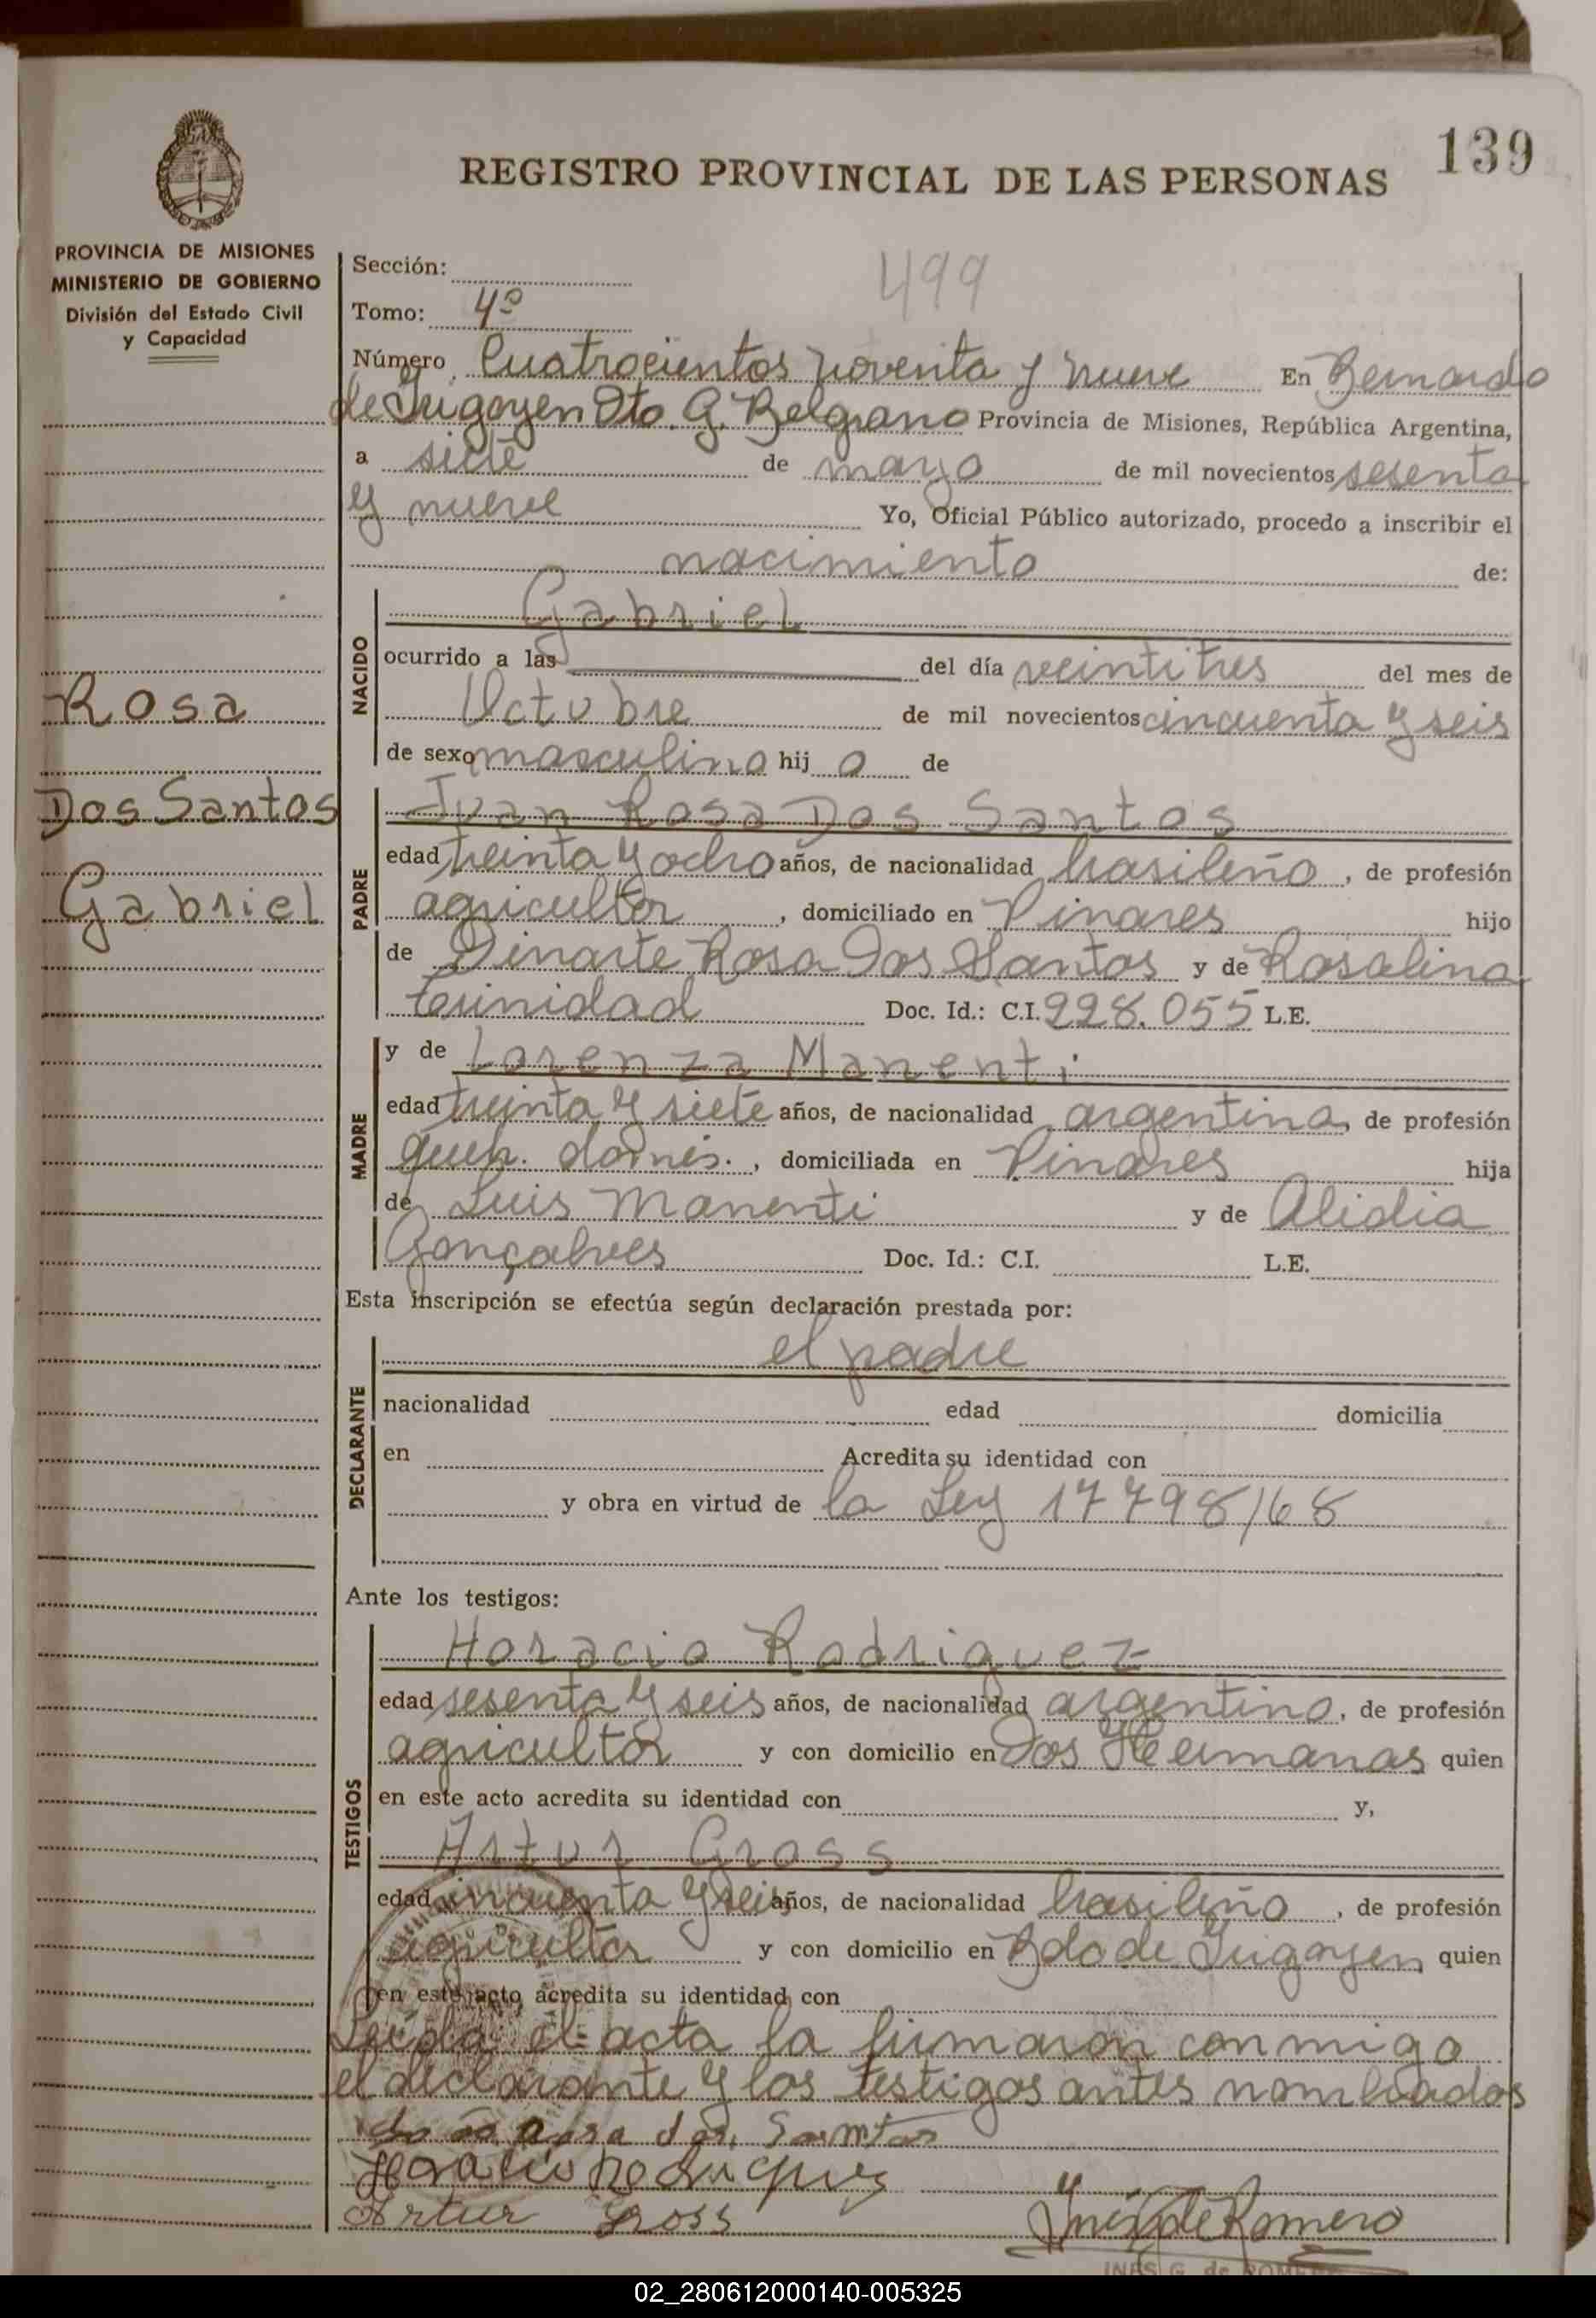 139
REGISTRO PROVINCIAL DE LAS PERSONAS
PROVINCIA DE MISIONES
MINISTERIO DE GOBIERNO
División del Estado Civil
y Capacidad
Rosa
Dos Santos
Gabriel
Sección:
499
Tomo: 4º
Número Cuatrocientos noventa y nueve En Bernardo
de Irigoyen Dto. G. Belgrano Provincia de Misiones, República Argentina,
a siete de mayo de mil novecientos sesenta
y nueve Yo, Oficial Público autorizado, procedo a inscribir el
nacimiento de:
NACIDO
Gabriel
ocurrido a las del día veintitres del mes de
Octubre de mil novecientos cincuenta y seis
de sexo masculino hij o de
PADRE
Juan Rosa Dos Santos
edad treinta y ocho años, de nacionalidad brasileño, de profesión
agricultor, domiciliado en Pinares hijo
de Dinarte Rosa Dos Santos y de Rosalina
Trinidad Doc. Id.: C.I. 228.055 L.E.
MADRE
y de Lorenza Manenti
edad treinta y siete años, de nacionalidad argentina, de profesión
queh. domés., domiciliada en Pinares hija
de Luis Manenti y de Alidia
Gonçalves Doc. Id.: C.I. L.E.
Esta inscripción se efectúa según declaración prestada por:
DECLARANTE
el padre
nacionalidad edad domicilia
en Acredita su identidad con
y obra en virtud de la Ley 17798/68
Ante los testigos:
TESTIGOS
Horacio Rodriguez
edad sesenta y seis años, de nacionalidad argentino, de profesión
agricultor y con domicilio en Dos Hermanas quien
en este acto acredita su identidad con y,
Artur Gross
edad cincuenta y seis años, de nacionalidad brasileño, de profesión
agricultor y con domicilio en Bdo de Irigoyen quien
en este acto acredita su identidad con
Leída el acta la firmaron conmigo
el declarante y los testigos antes nombrados
dos Santos
Horacio Rodriguez
Artur Gross
Inés G. de Romero
INES G. de ROMERO
02_280612000140-005325